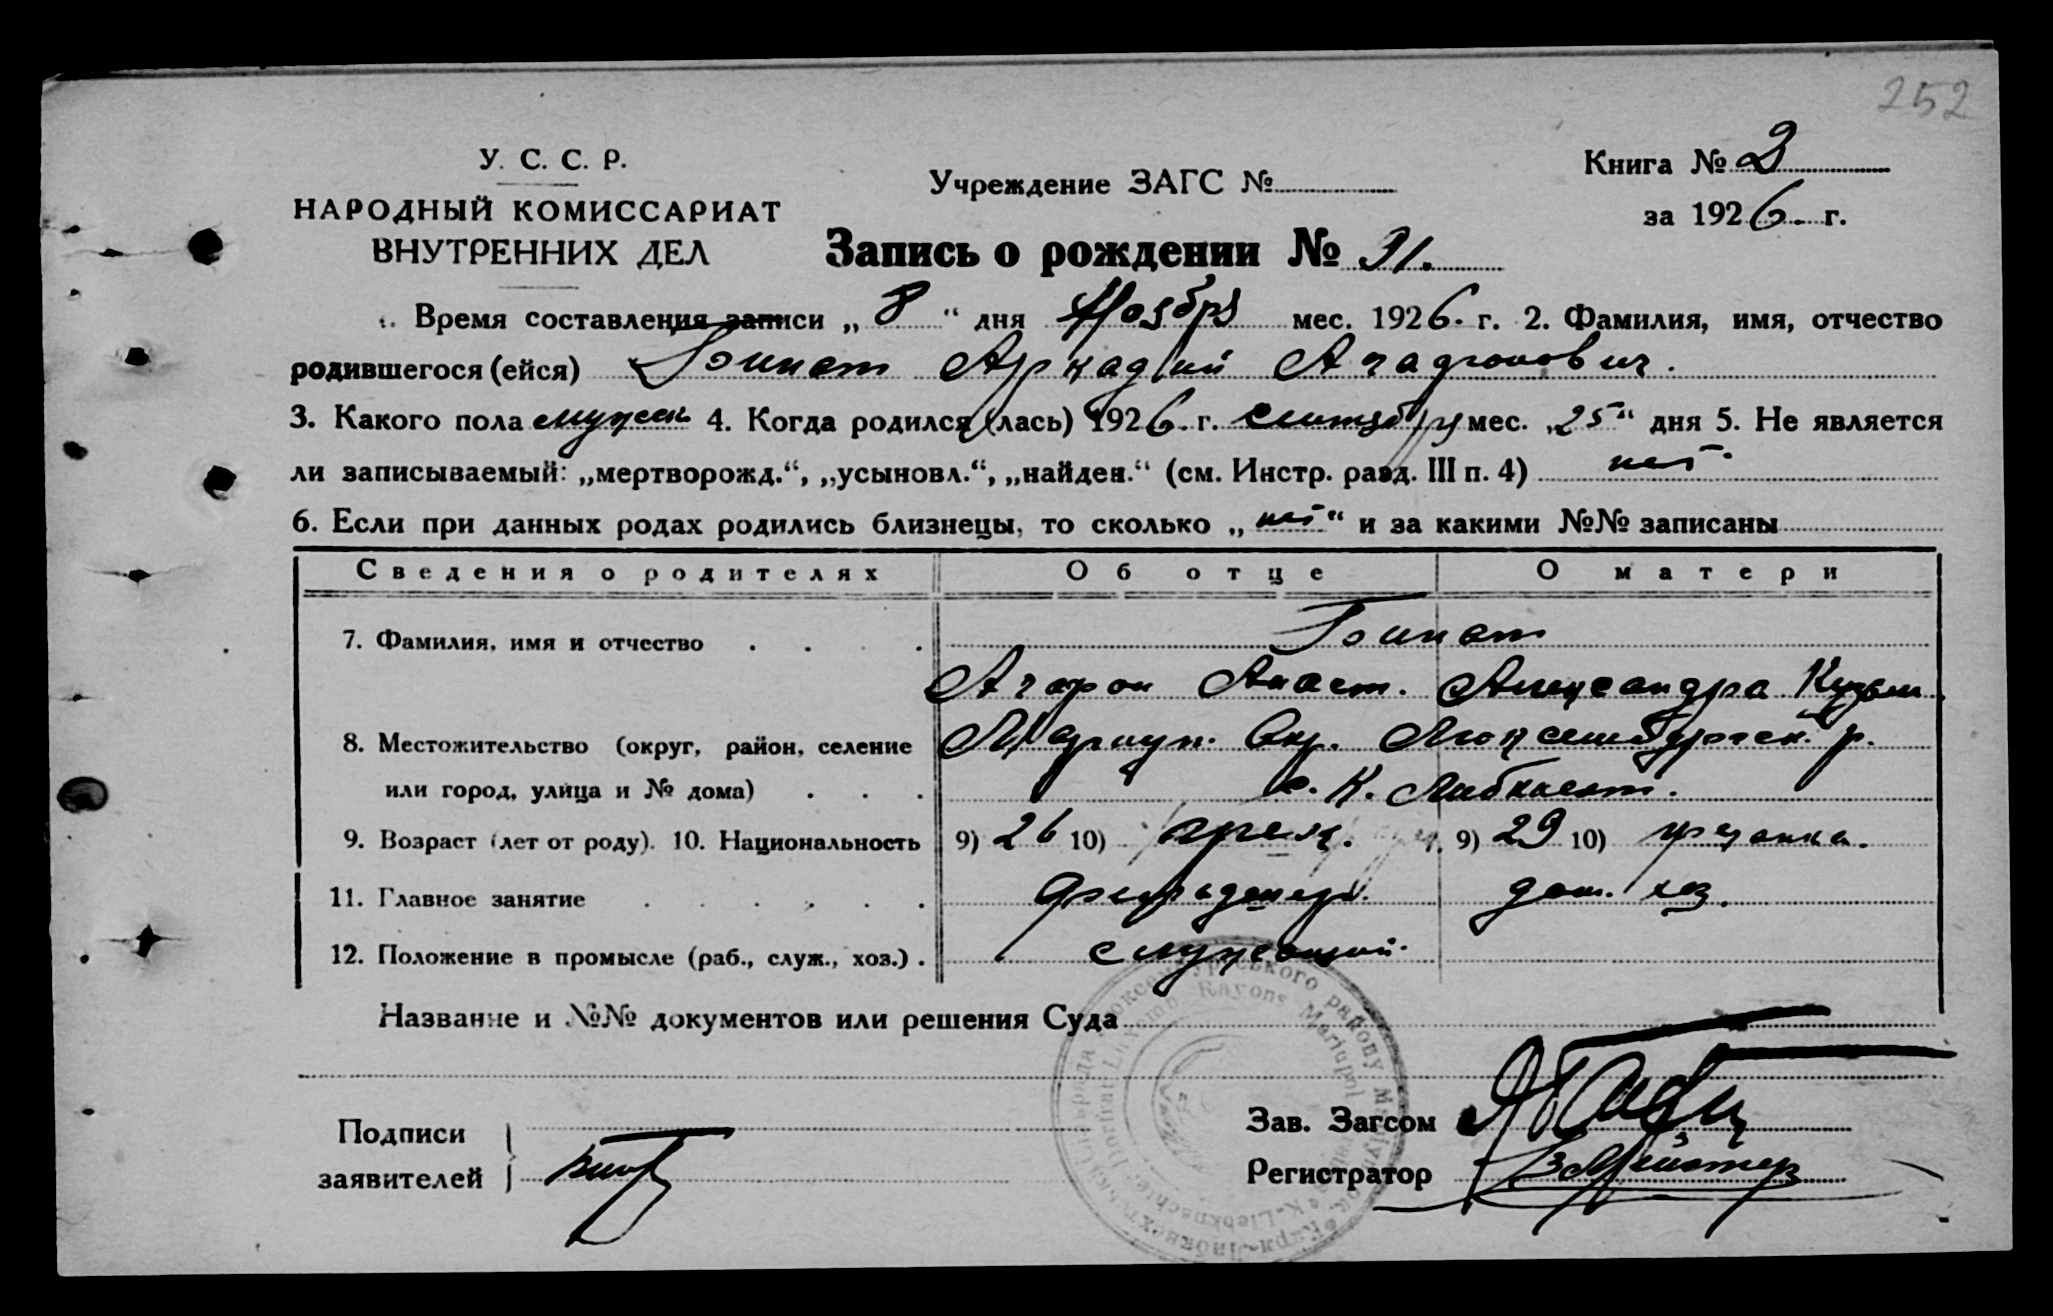 252
У. С. С. Р.
НАРОДНЫЙ КОМИССАРИАТ
ВНУТРЕННИХ ДЕЛ
Учреждение ЗАГС №
Книга № 2
за 1926. г.
Запись о рождении № 31.
1. Время составления записи „8“ дня Ноября мес. 1926. г. 2. Фамилия, имя, отчество
родившегося (ейся) Аркадий
3. Какого пола мужск 4. Когда родился (лась) 1926. г. сентября мес. „25“ дня 5. Не является
ли записываемый: „мертворожд.“, „усыновл.“, „найден.“ (см. Инстр. разд. III п. 4) нет.
6. Если при данных родах родились близнецы, то сколько „нет“ и за какими №№ записаны
Сведения о родителях Об отце О матери
7. Фамилия, имя и отчество
Александра Кузьм.
8. Местожительство (округ, район, селение Мариуп. Окр. Люксембургск. р.
или город, улица и № дома) с. К. Либкнехт.
9. Возраст (лет от роду). 10. Национальность 9) 26 10) грек. 9) 29 10) гречанка.
11. Главное занятие фельдшер. дом. хоз.
12. Положение в промысле (раб., служ., хоз.) служащий.
Название и №№ документов или решения Суда
Подписи
заявителей
Зав. Загсом
Регистратор